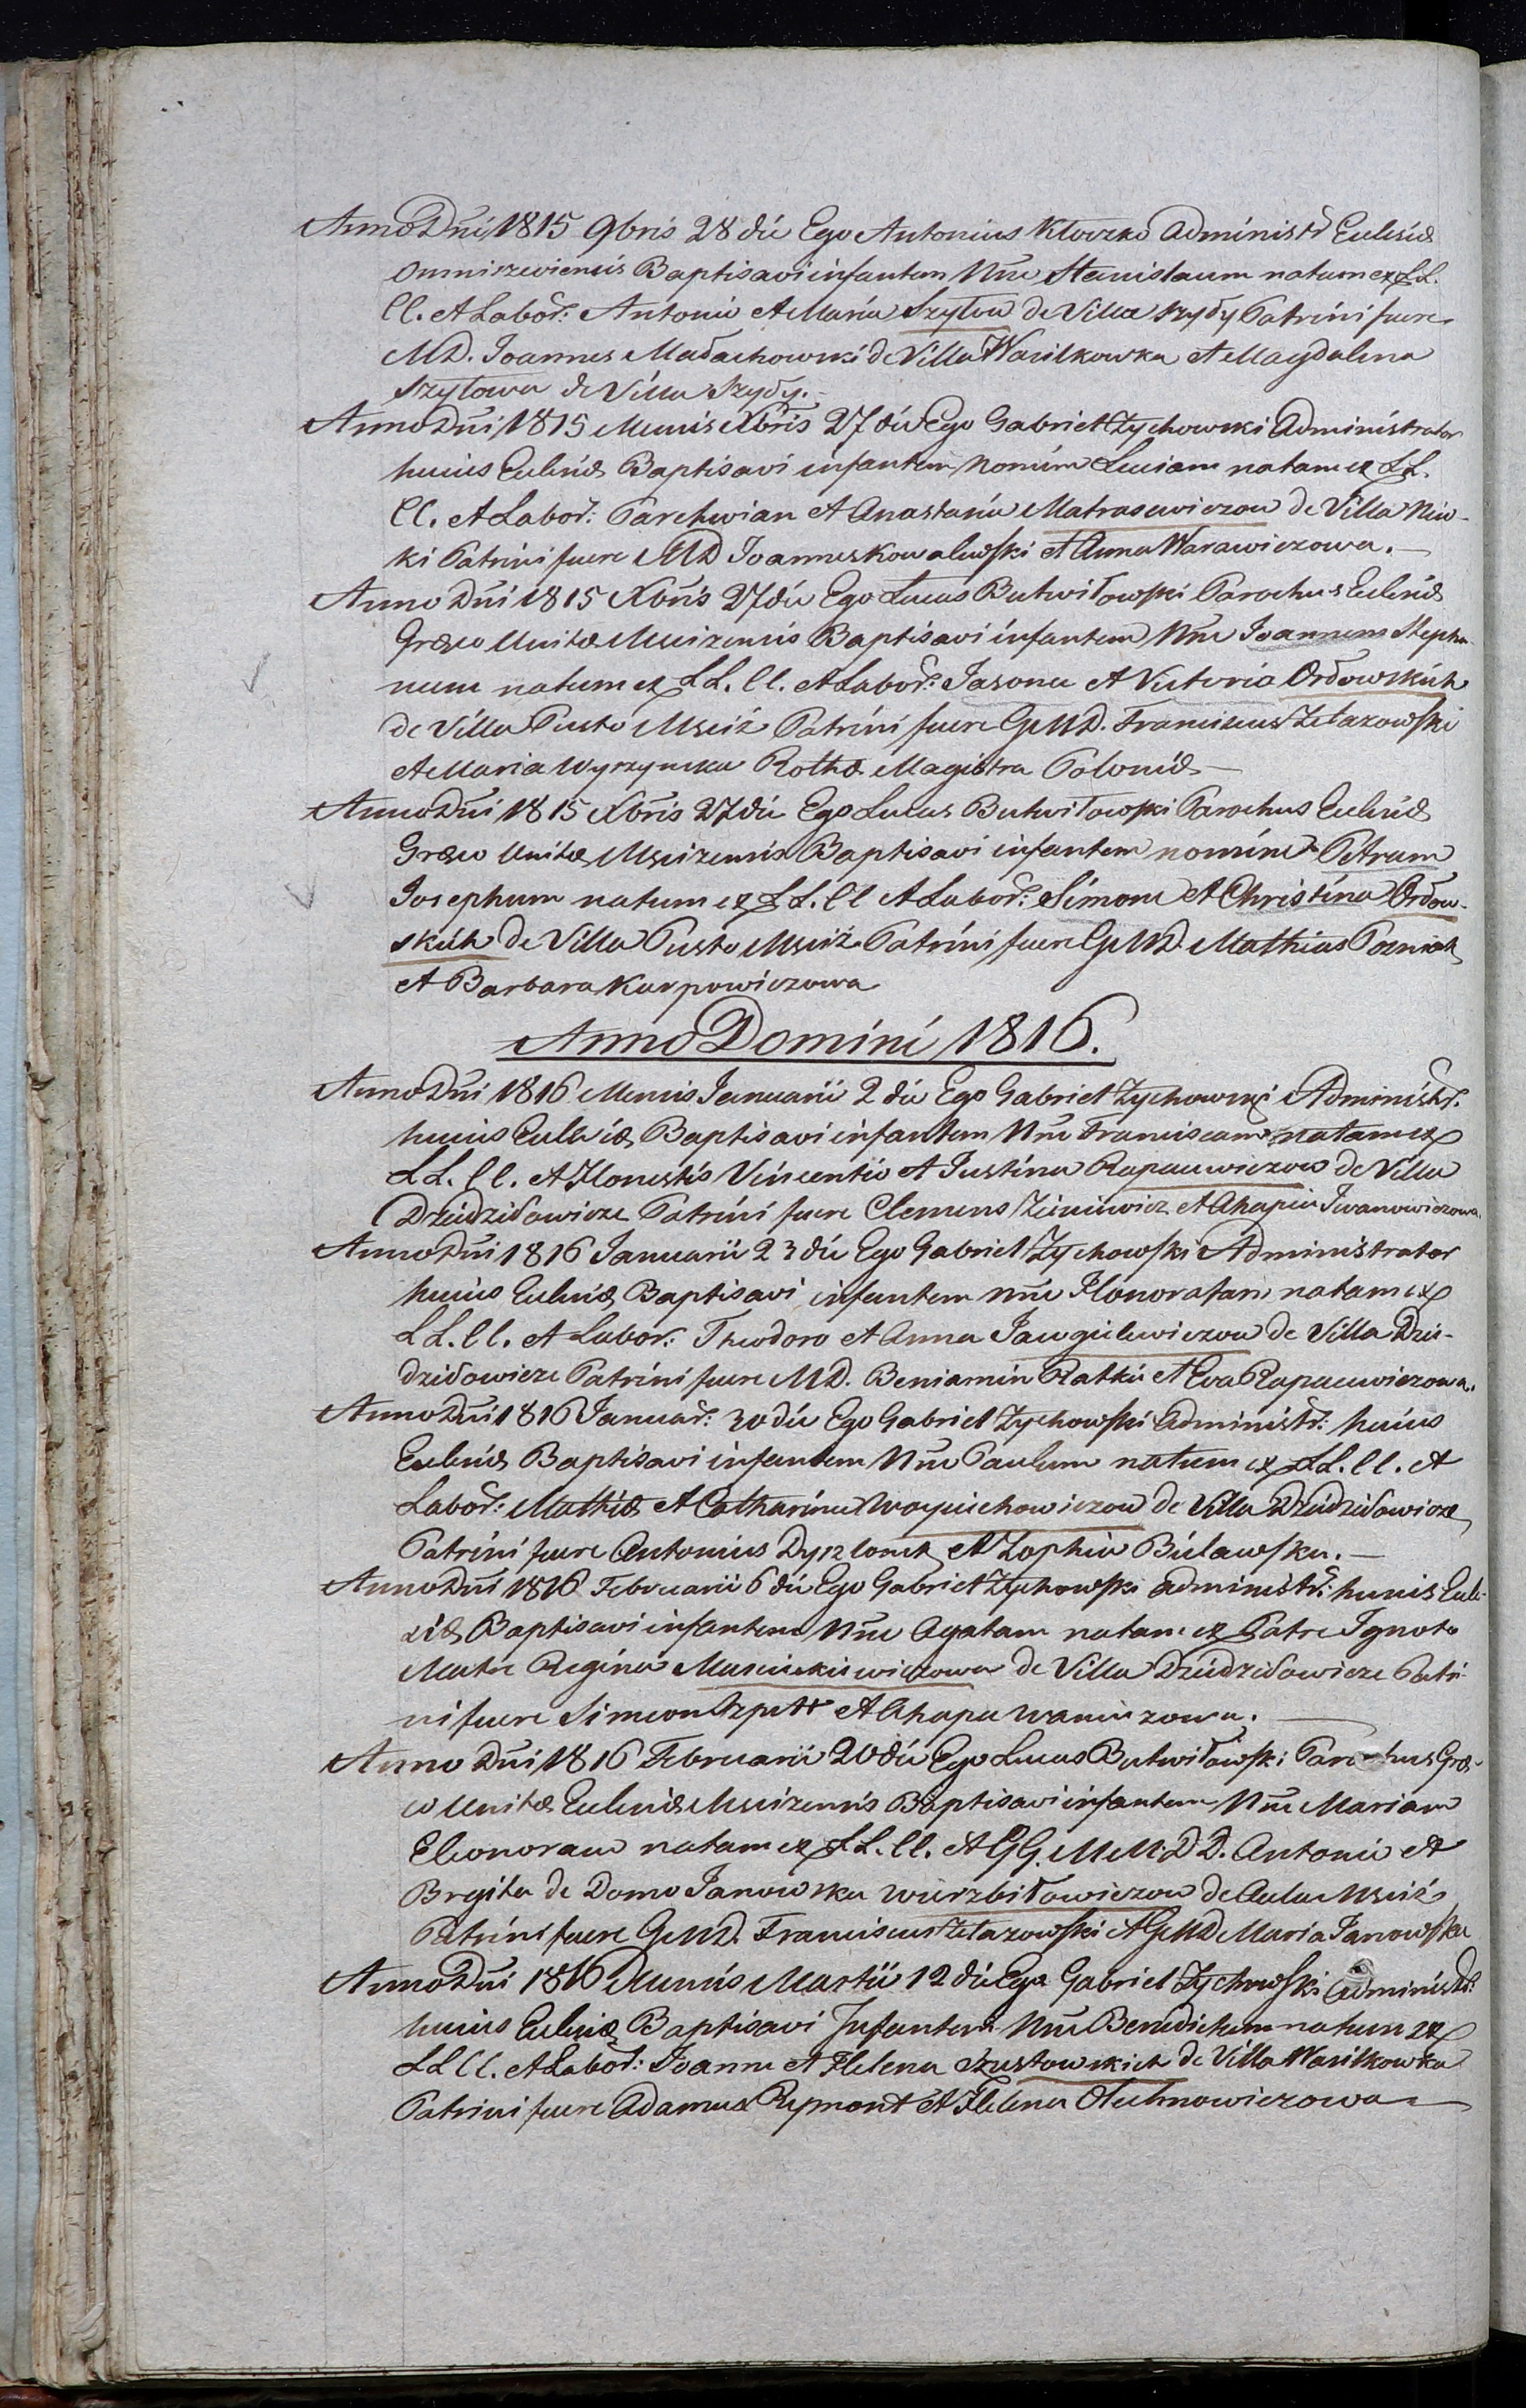 Anno Dni 1815 9bris 28 die Ego Antonius Kloczko Administr Ecclesiæ
Omniszewiensis Baptisavi infantem Nne Stanislaum natum ex LL.
CC. et Labor: Antonio et Maria Szytow de Villa Szydy Patrini fuere
MD. Joannes Małachowski de Villa Wasilkowka et Magdalena
Szytowa de Villa Szydy.
Anno Dni 1815 Mensis Xbris 27 die Ego Gabriel Zychowski Administrator
huius Ecclesiæ Baptisavi infantem Nomine Luciam natam ex LL.
CC. et Labor: Parchwian et Anastasia Matrasewiczow de Villa Niw-
ki Patrini fuere MD Joannes Kowalewski et Anna Warawiczowa.
Anno Dni 1815 Xbris 27 die Ego Lucas Butwiłowski Parochus Ecclesiæ
Græco Unitæ Mscizensis Baptisavi infantem Nne Joannem Stepha-
num natum ex LL. CC. et Labor: Jasone et Victoria Ordowskich
de Villa Pusto Msciż Patrini fuere GMD. Franciscus Żełazowski
et Maria Wyrzynska Rothæ Magistra Poloniæ
Anno Dni 1815 Xbris 27 die Ego Lucas Butwiłowski Parochus Ecclesiæ
Græco Unitæ Mscizensis Baptisavi infantem nomine Petrum
Josephum natum ex LL. CC et Labor: Simone et Christina Ordow-
skich de Villa Pusto Msciż Patrini fuere GMD. Mathias Pozniak
et Barbara Karpowiczowa
Anno Domini 1816.
Anno Dni 1816 Mensis Januarii 2 die Ego Gabriel Zychowski Administr.
huius Ecclesiæ Baptisavi infantem Nne Franciscam natam ex
LL. CC. et Honestis Vincentio et Justina Rapacewiczow de Villa
Dziedziłowicze Patrini fuere Clemens Zieniewicz et Ahapia Iwanowiczowa.
Anno Dni 1816 Januarii 23 die Ego Gabriel Zychowski Administrator
huius Ecclesiæ Baptisavi infantem Nne Honoratam natam ex
LL. CC. et Labor: Theodoro et Anna Jawgielewiczow de Villa Dzie-
dziłowicze Patrini fuere MD. Beniamin Ratkie et Eva Rapacewiczowa.
Anno Dni 1816 Januar: 30 die Ego Gabriel Zychowski Administr: huius
Ecclesiæ Baptisavi infantem Nne Paulum natum ex LL. CC. et
Labor: Mathiæ et Catharina Woyciechowiczow de Villa Dziedziłowicze
Patrini fuere Antonius Dyszlonek et Zophia Bielawska.
Anno Dni 1816 Februarii 6 die Ego Gabriel Zychowski Administr: huius Eccle-
siæ Baptisavi infantem Nne Agatam natam ex Patre Ignoto
Matre Regina Mascinkiewiczowa de Villa Dziedziłowicze Patri-
ni fuere Simeon Szpett et Ahapa Waniczowa.
Anno Dni 1816 Februarii 20 die Ego Lucas Butwiłowski Parochus Græ-
co Unitæ Ecclesiæ Mscizensis Baptisavi infantem Nne Mariam
Eleonoram natam ex LL. CC. et GG. MM. DD. Antonio et
Brygita de Domo Janowska Wierzbiłowiczow de Aula Msciż
Patrini fuere GMD. Franciscus Żełazowski et GMD Maria Janowska
Anno Dni 1816 Mensis Martii 12 die Ego Gabriel Zychowski Administr:
huius Ecclesiæ Baptisavi Infantem Nne Benedictum natum ex
LL CC. et Labor: Joanne et Helena Szustowskich de Villa Wasilkowka
Patrini fuere Adamus Reymont et Helena Olechnowiczowa